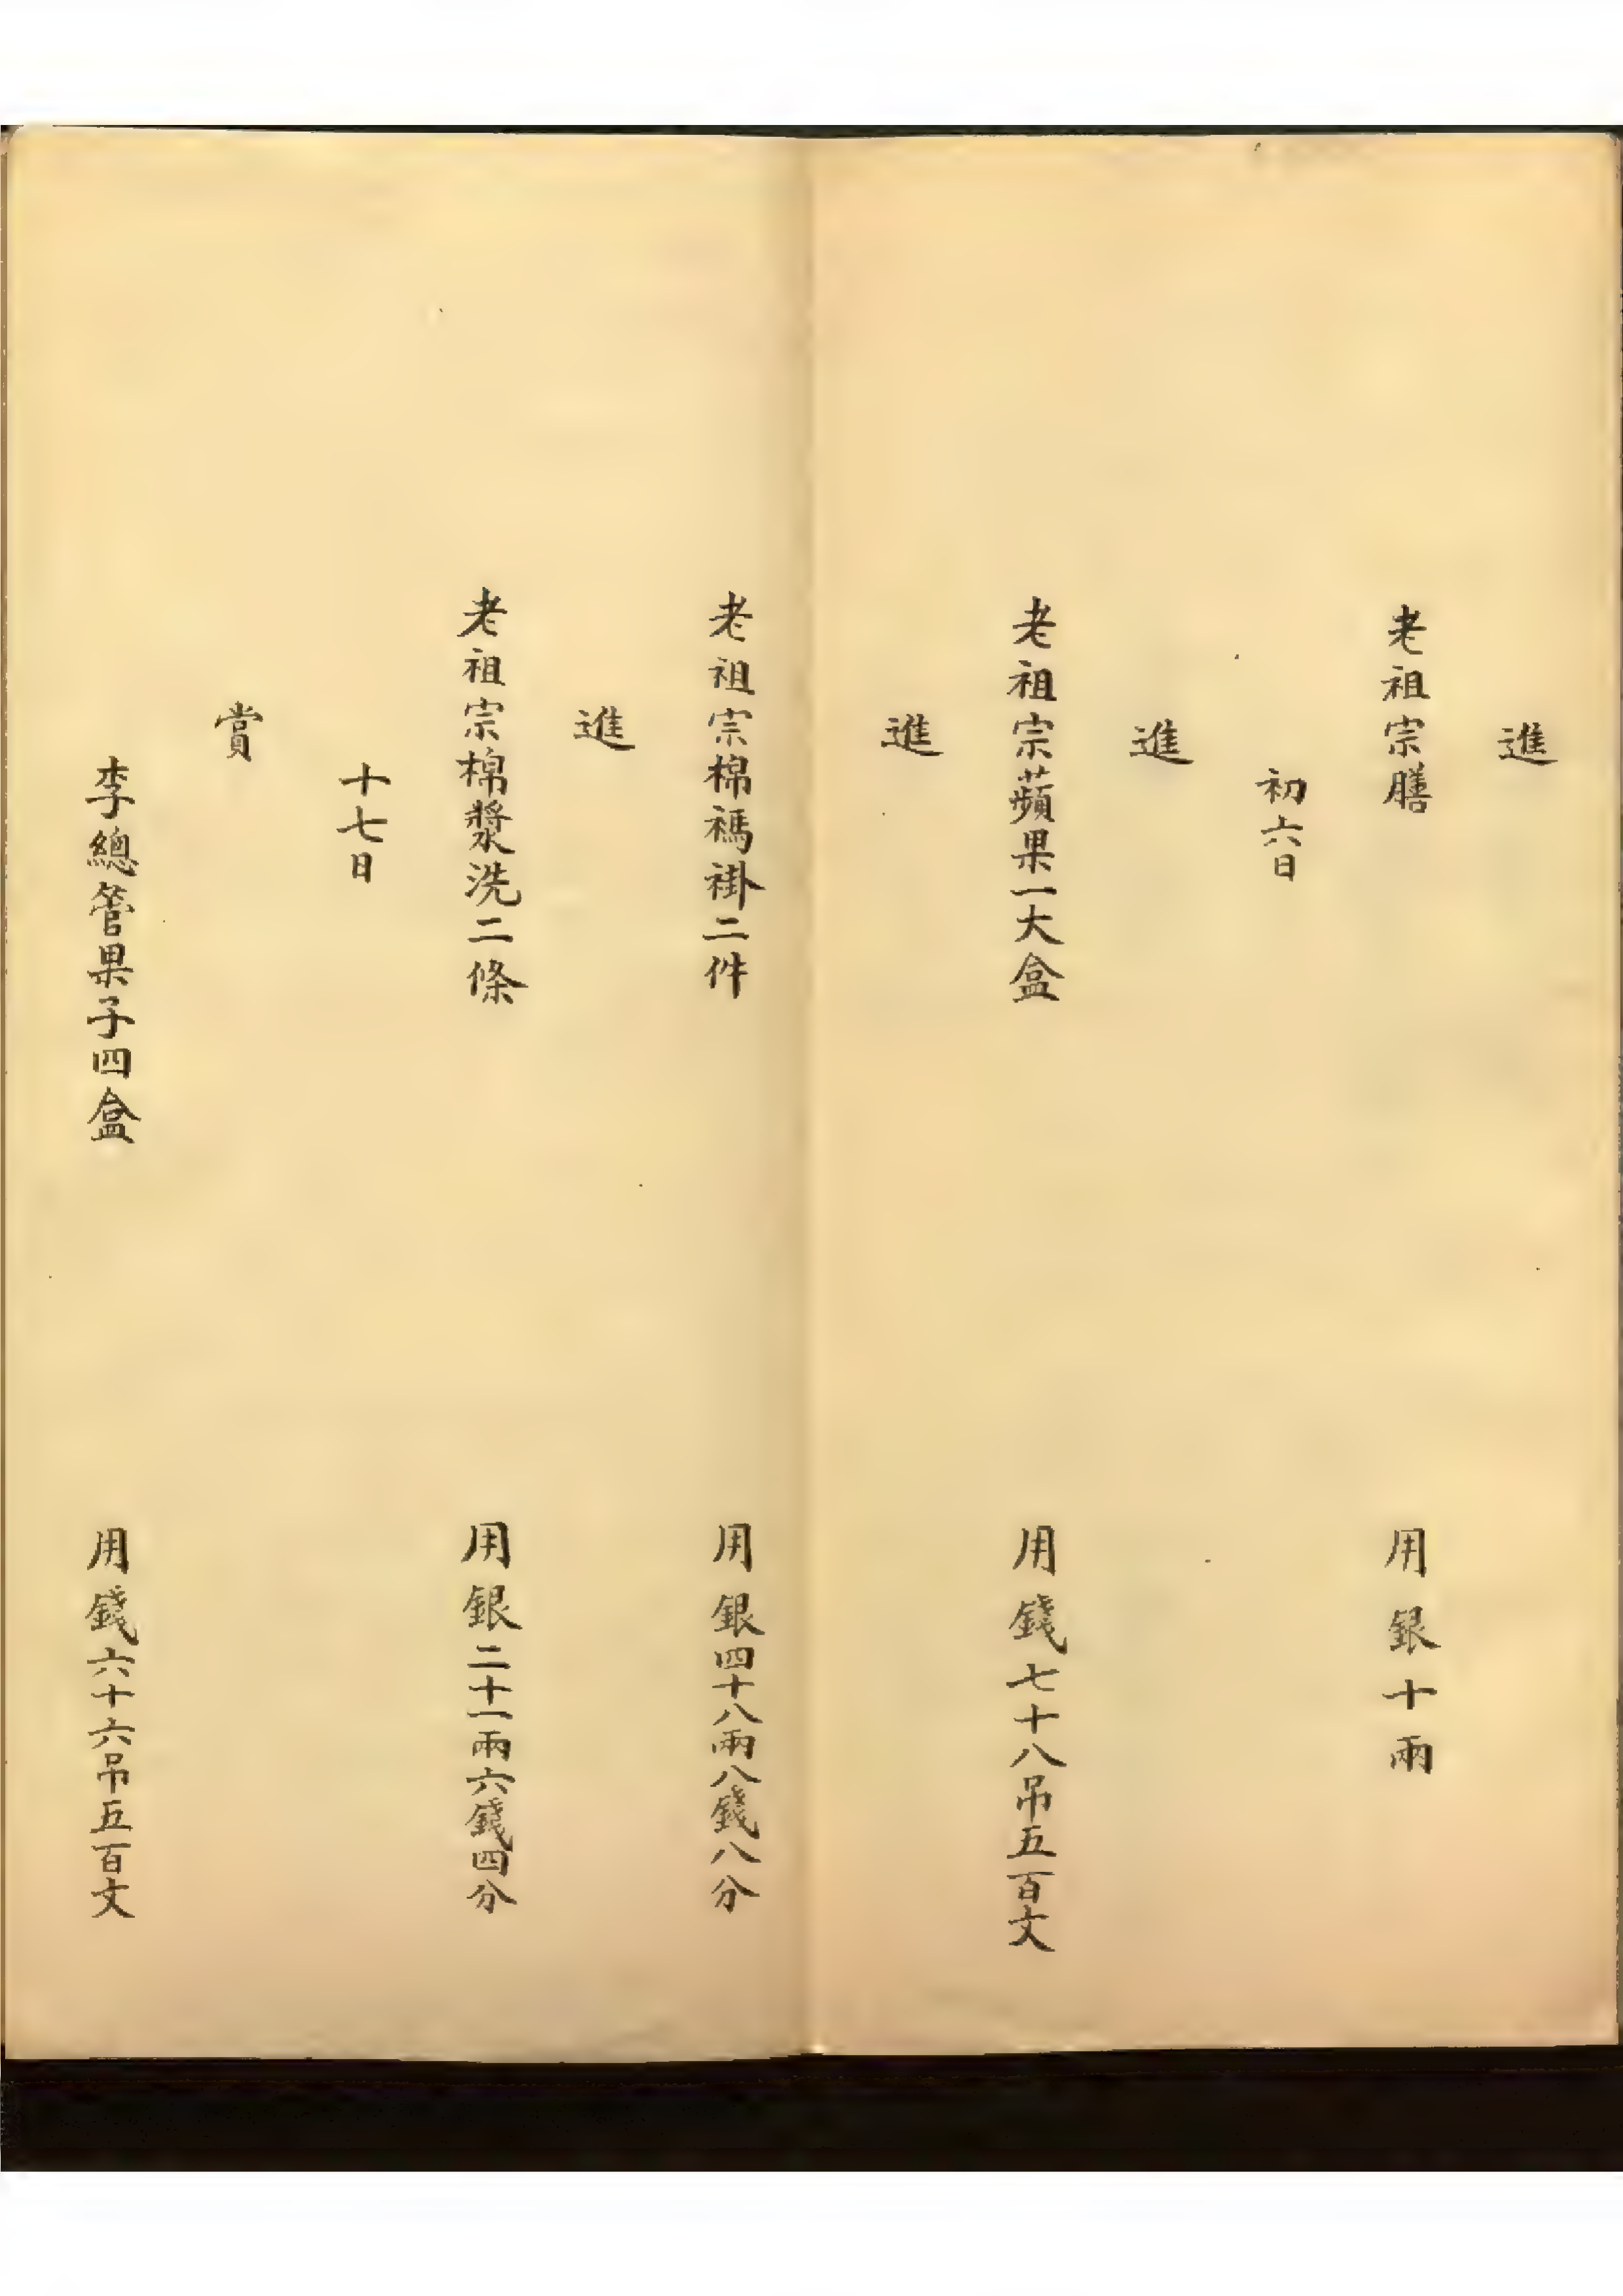 進
老祖宗膳 用銀十兩
初六日
進
老祖宗蘋果一大盒 用錢七十八吊五百文
進
老祖宗棉禡褂二件 用銀四十八兩八錢八分
進
老祖宗棉漿洗二條 用銀二十一兩六錢四分
十七日
賞
李總管果子四盒 用錢六十六吊五百文